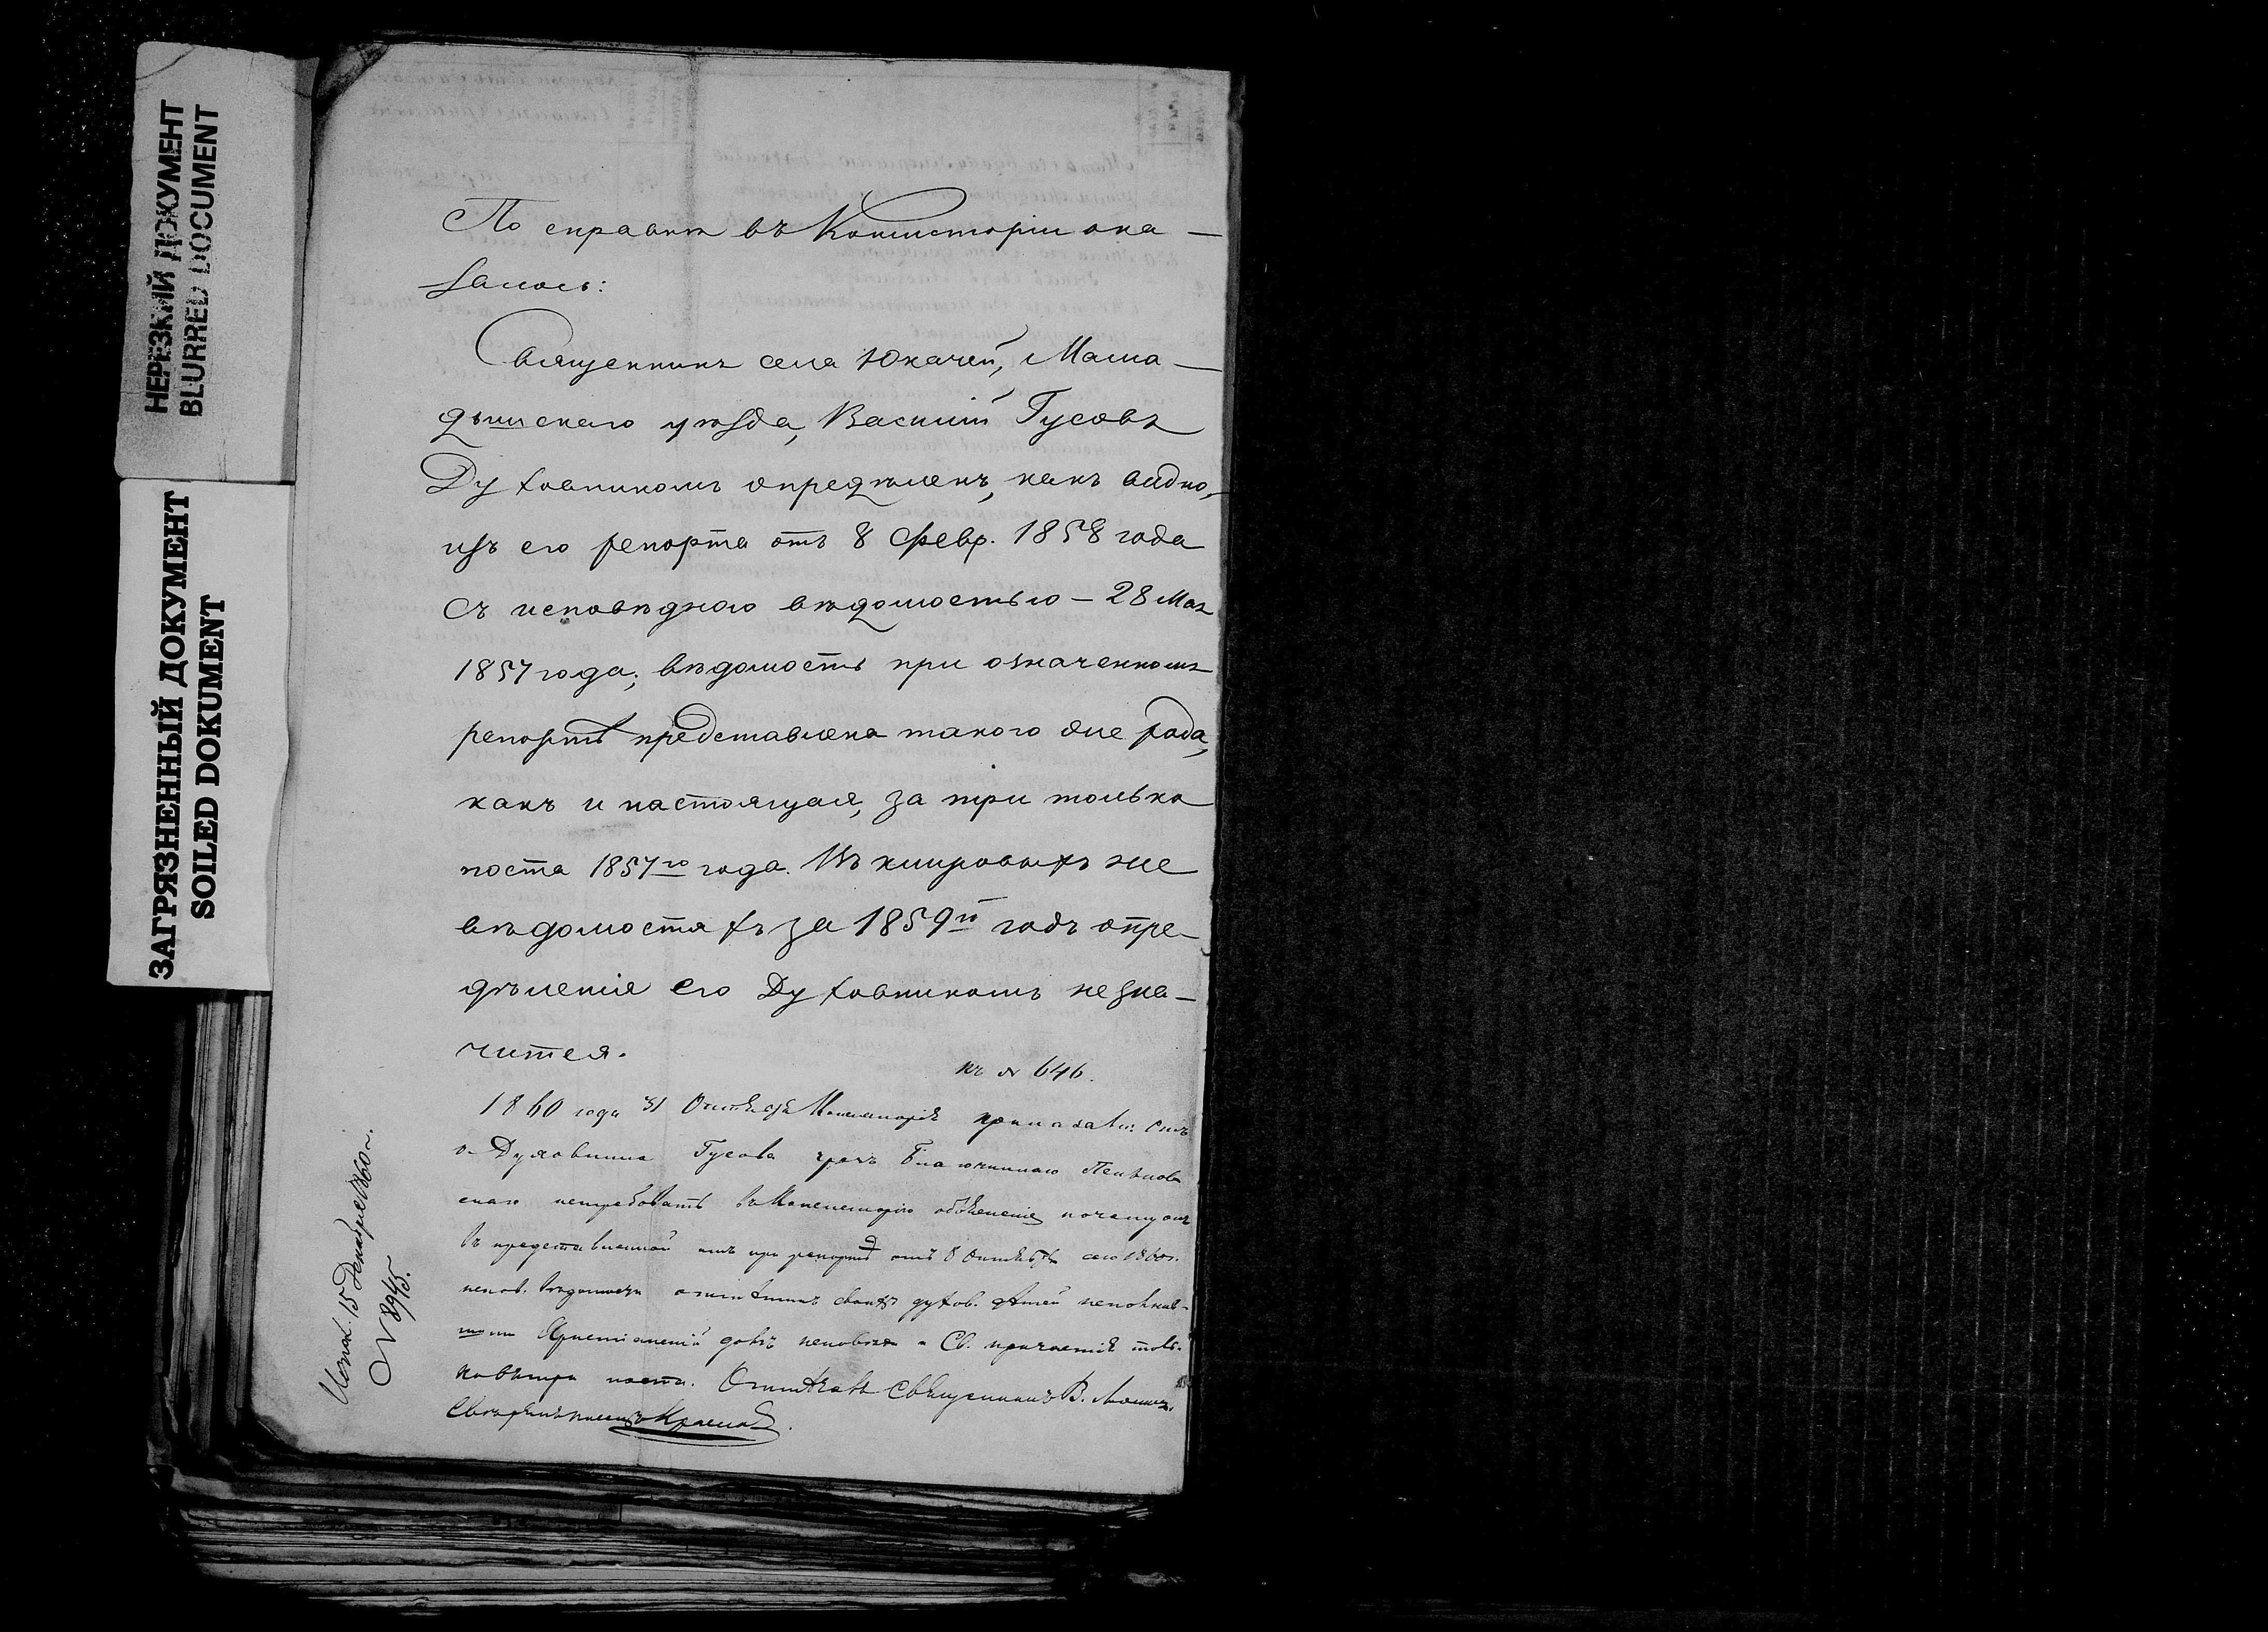 НЕРЕЗКИЙ ДОКУМЕНТ
BLURRED DOCUMENT
ЗАГРЯЗНЕННЫЙ ДОКУМЕНТ
SOILED DOKUMENT
По справкѣ въ Консисторіи ока-
залось:
Священникъ села Юкачей, Мама-
дышскаго уѣзда, Василій Гусевъ
Духовникомъ опредѣленъ, какъ видно,
изъ его репорта отъ 8 Февр. 1858 года
съ исповѣдною вѣдомостью – 28 Мая
1857 года; вѣдомость при означенномъ
репортѣ представлена такого же рода,
какъ и настоящая, за три только
поста 1857го года. Въ клировыхъ же
вѣдомостяхъ за 1859й годъ опре-
дѣленіе его Духовникомъ незна-
чится.
къ № 646.
1860 года 31 Октября Консисторія приказали: Отъ
Духовника Гусева чрезъ Благочиннаго
истребовать въ Консисторію объясненіе почему онъ
въ представленной имъ при репортѣ отъ 8 Октября сего 1860 г.
испов. вѣдомости своихъ духов. дѣтей
Христіанскій долгъ исповѣди и Св. причастія толь-
ко въ три поста. Священникъ В.
Испол. 15 Декабря 1860 г.
№ 8945.